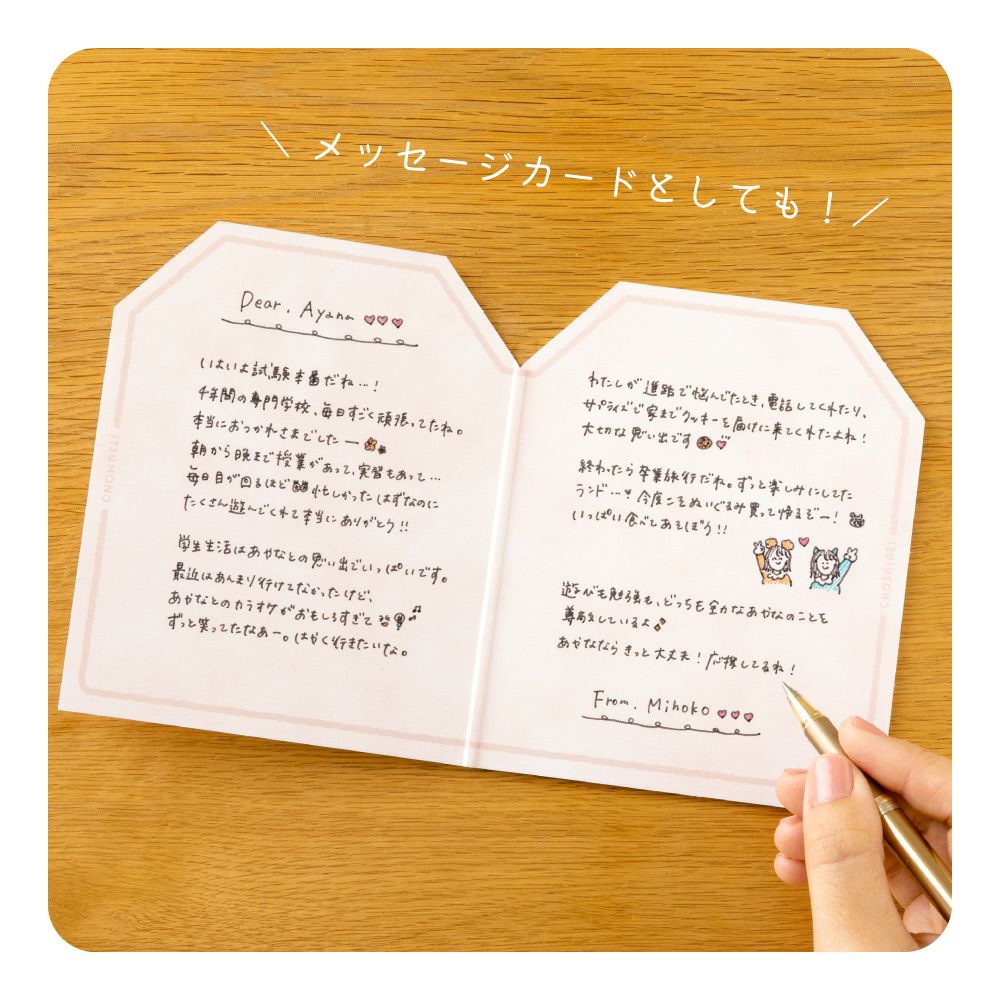 ＼ メッセージカードとしても！ ／
Dear. Ayana
いよいよ試験本番だね…！
4年間の専門学校、毎日すごく頑張ってたね。
本当におつかれさまでしたー
朝から晩まで授業があって、実習もあって…
毎日目が回るほど忙しかったはずなのに
たくさん遊んでくれて本当にありがとう!!
学生生活はあやなとの思い出でいっぱいです。
最近はあんまり行けてなかったけど、
あやなとのカラオケがおもしろすぎて
ずっと笑ってたなあー。はやく行きたいな。
ONOMUSTI
わたしが進路で悩んでたとき、電話してくれたり、
サプライズで家までクッキーを届けに来てくれたよね！
大切な思い出です
終わったら卒業旅行だね。ずっと楽しみにしてた
ランド…！今度こそぬいぐるみ買って帰るぞー！
いっぱい食べてあそぼう!!
遊びも勉強も、どっちも全力なあやなのことを
尊敬しているよ
あやなならきっと大丈夫！応援してるね！
From. Mihoko
CHOSHIDE!